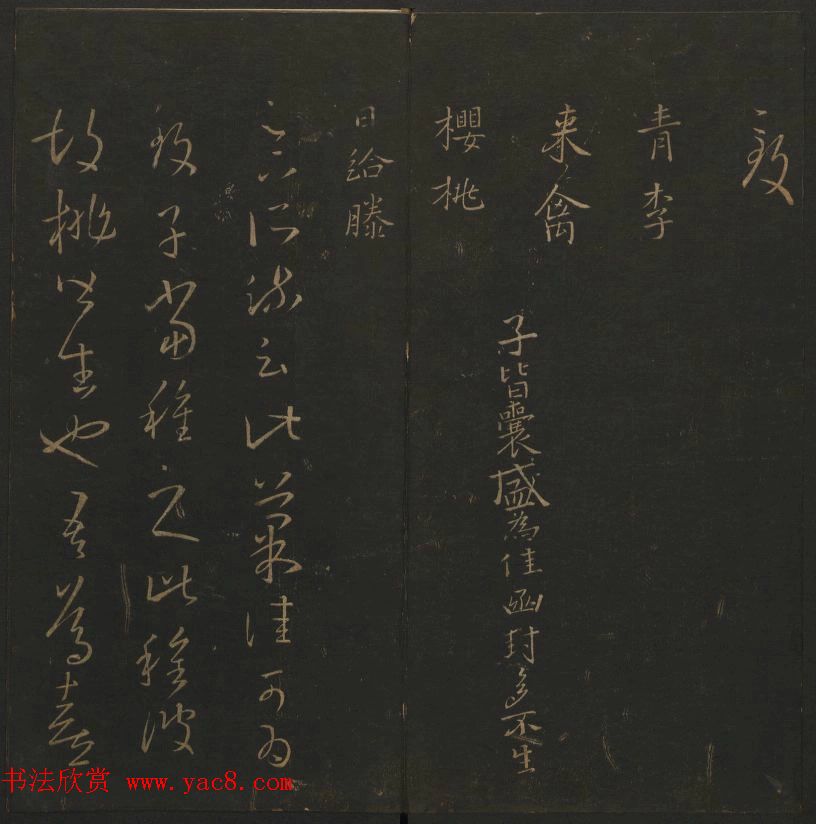 當致
青李
来禽
櫻桃
日給滕
子皆囊盛為佳函封多不生
足下所疏云此菓佳可為
致子當種之此種彼
胡桃皆生也吾篤喜
书法欣赏 www.yac8.com